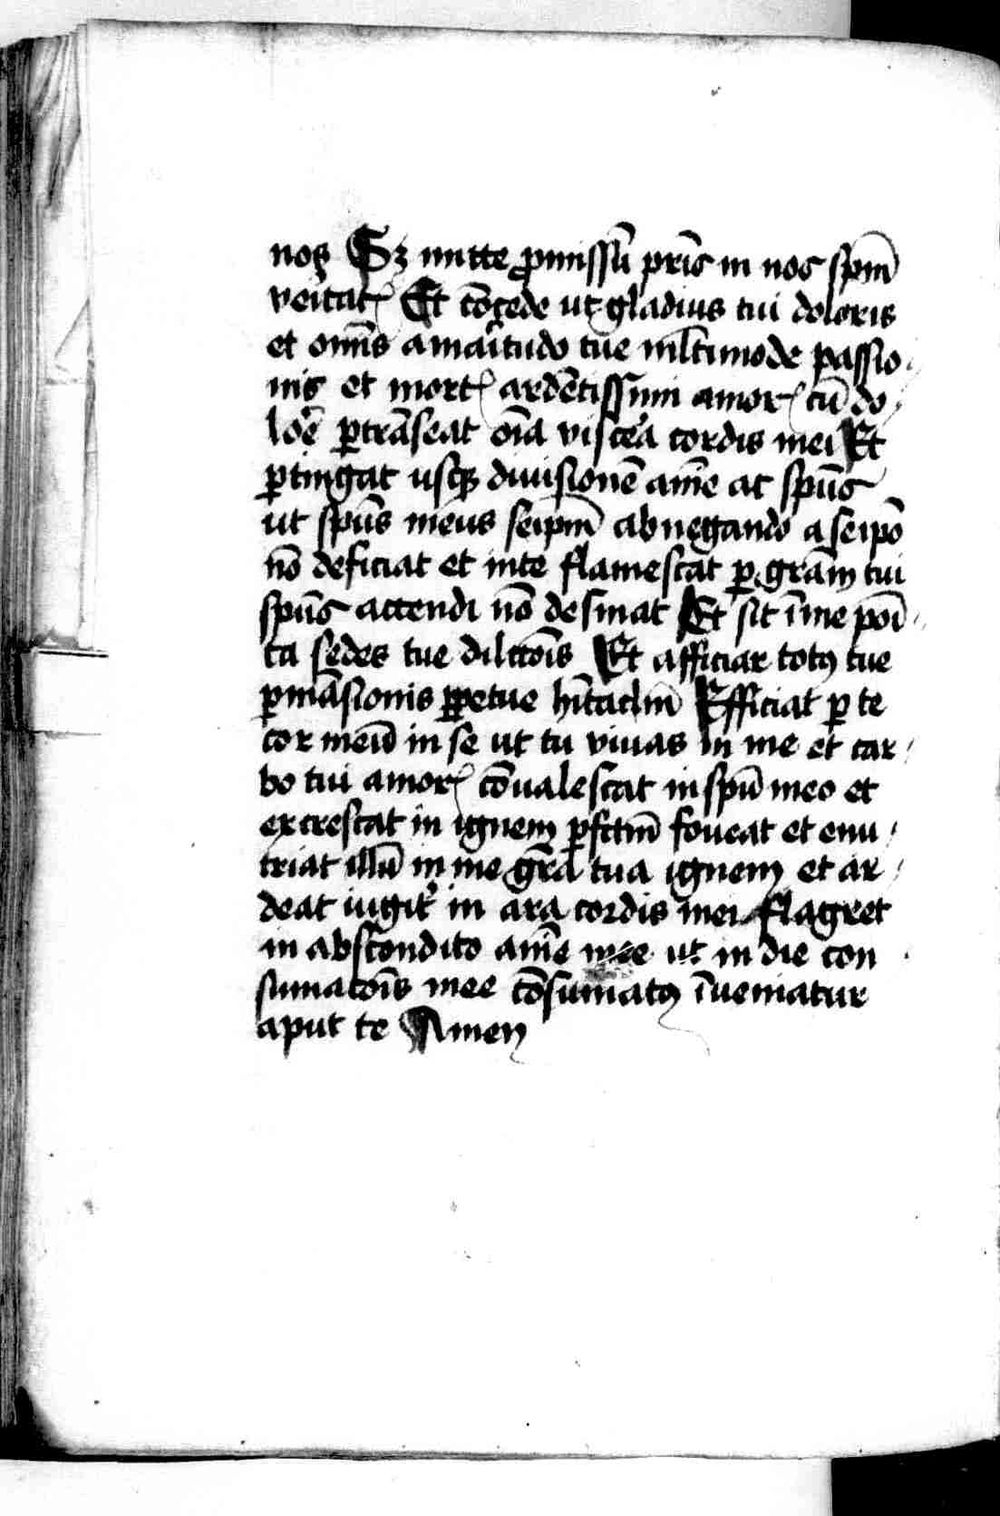 nos Sz mitte ꝓmissū pr̄is in nos spm̄
veitatꝭ Et cōcede ut gladius tui doloris
et om̄s amaitudo tue ml̄timode passio
nis et mortꝭ ardētissimi amorꝭ cū do
loē ꝑtrāseat oīa viscēa cordis mei Et
ꝑtingat usqꝫ diuisionē aīme ac spūs
ut spūs meus seipm̄ abnegando a seipō
nō deficiat et in te flamescat ꝑ grām tui
spūs accendi nō desinat Et sit ī me poī
ta sedes tue dilctōis Et afficiar totꝰ tue
ꝑmāsionis ꝑpetue hītaclm̄ Efficiat ꝑ te
cor meū in se ut tu viuas in me et car
bo tui amorꝭ cōualescat in spū meo et
excrescat in ignem ꝑfctm̄ foueat et enu
triat illū in me gr̄a tua ignem et ar
deat iugit᷒ in ara cordis mei flagret
in abscondito aīme mee ut in die con
sumatōis mee cōsumatꝰ īueniatur
aput te Amen